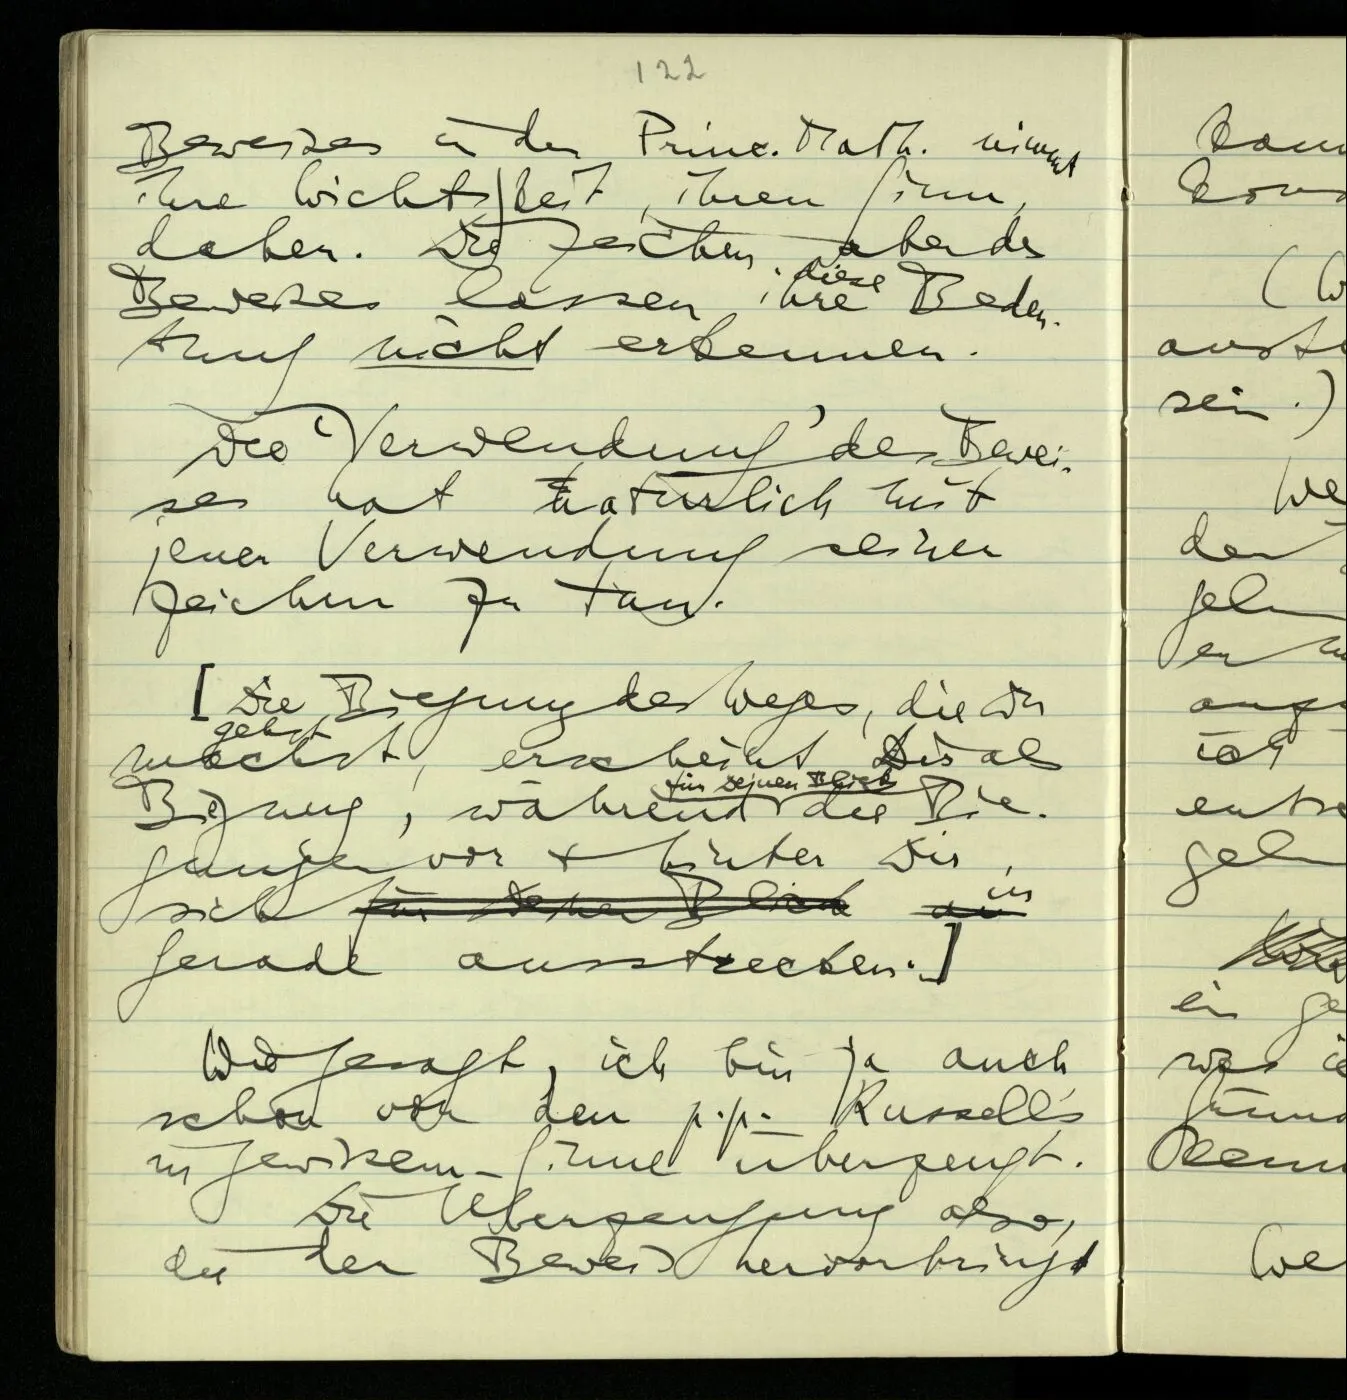 122
Beweises in der Princ. Math. nimmt
ihre Wichtigkeit, ihren Sinn,
daher. Die Zeichen aber des
diese
Beweises lassen ihre Bedeu-
tung nicht erkennen.
Die 'Verwendung' des Bewei-
ses hat natürlich mit
jener Verwendung seiner
Zeichen zu tun.
[Die Biegung des Weges, die Du
gehst
machst, erscheint Dir als
für Deinen Blick
Biegung, während die Bie-
gungen vor & hinter Dir,
sich für Deinen Blick in
gerade ausstrecken.]
Wie gesagt, ich bin ja auch
schon von den p.p. Russell's
in gewissem Sinne überzeugt.
Die Überzeugung also,
die der Beweis hervorbringt
kann
(W
sein.)
We
der
er
ich
ein ge
was
We